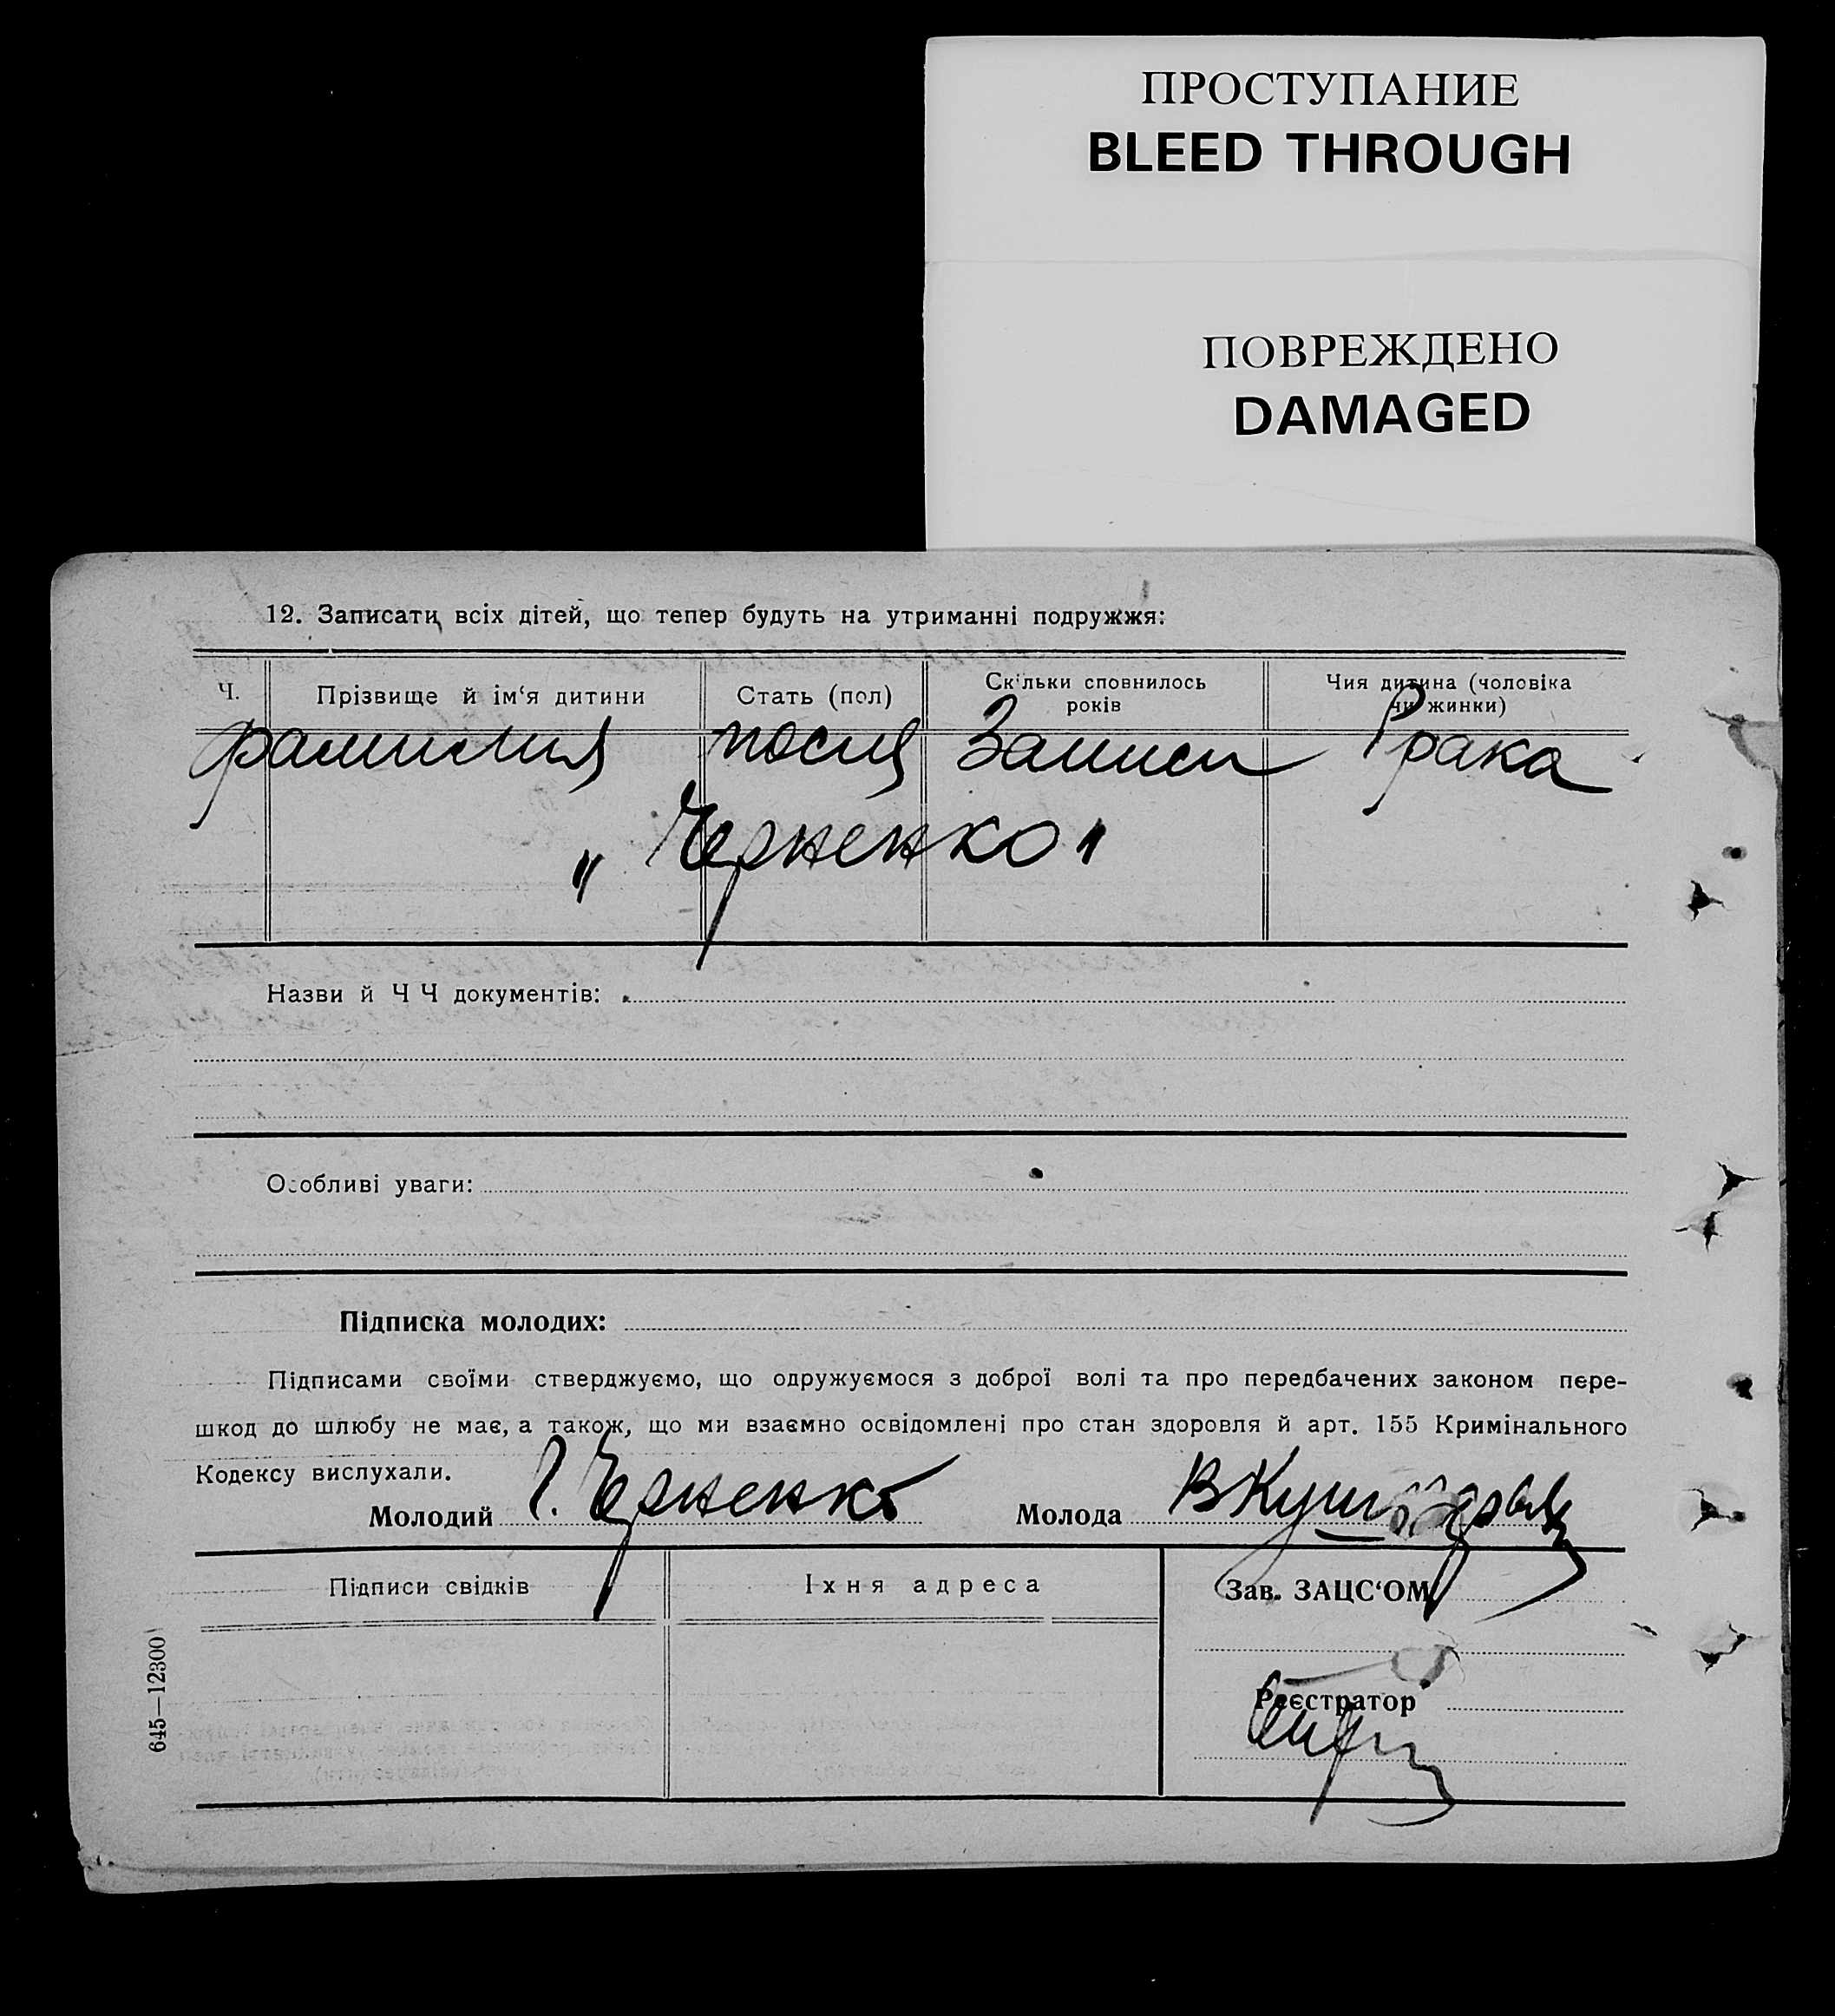 ПРОСТУПАНИЕ
BLEED THROUGH
ПОВРЕЖДЕНО
DAMAGED
12. Записати всіх дітей, що тепер будуть на утриманні подружжя:
Ч.
Прізвище й ім‘я дитини
Стать (пол)
Скільки сповнилось
років
Чия дитина (чоловіка
чи жинки)
фамилия после записи брака
„ Черненко "
Назви й Ч Ч документів:
Особливі уваги:
Підписка молодих:
Підписами своїми стверджуємо, що одружуємося з доброї волі та про передбачених законом пере-
шкод до шлюбу не має, а також, що ми взаємно освідомлені про стан здоровля й арт. 155 Кримінального
Кодексу вислухали.
Молодий Г. Черненко Молода В
Підписи свідків
Іхня адреса
Зав. ЗАЦС‘ОМ
Реєстратор
645—12300